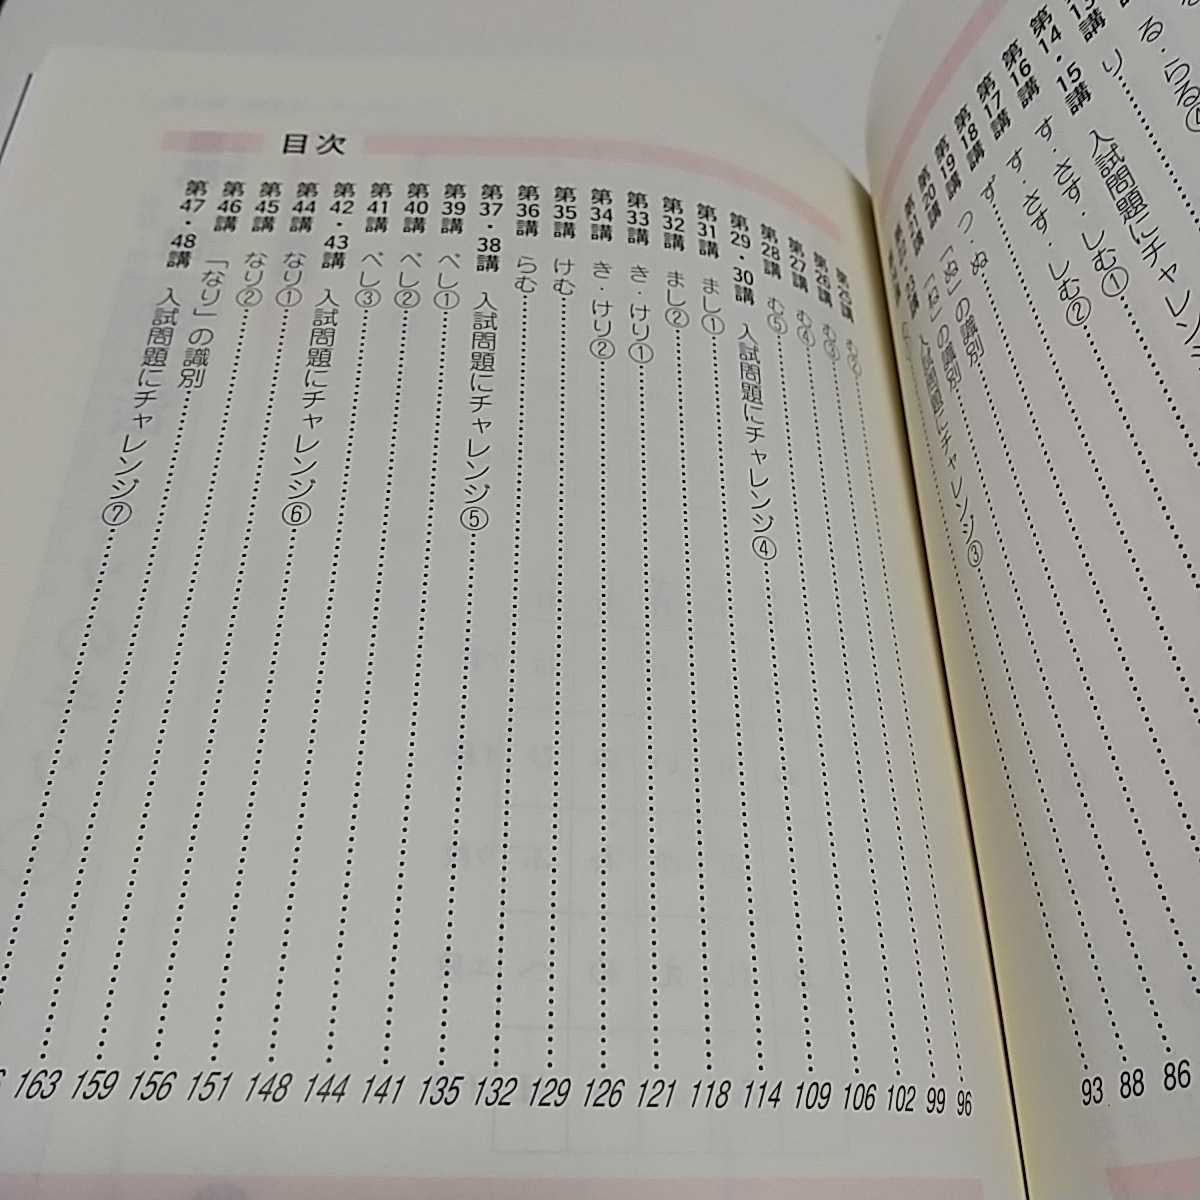 る・らる
り
講
第14・15講 入試問題にチャレン
第16講 す・さす・しむ①
第17講 す・さす・しむ②
第18講 ず
第19講 つ・ぬ
第20講 「ぬ」の識別
第21講 「ね」の識別 86
入試問題にチャレンジ③ 88
93
目次
第25講 む② 96
第26講 む③ 99
第27講 む④ 102
第28講 む⑤ 106
第29・30講 入試問題にチャレンジ④ 109
第31講 まし① 114
第32講 まし② 118
第33講 き・けり① 121
第34講 き・けり② 126
第35講 けむ 129
第36講 らむ 132
第37・38講 入試問題にチャレンジ⑤ 135
第39講 べし① 141
第40講 べし② 144
第41講 べし③ 148
第42・43講 入試問題にチャレンジ⑥ 151
第44講 なり① 156
第45講 なり② 159
第46講 「なり」の識別 163
第47・48講 入試問題にチャレンジ⑦